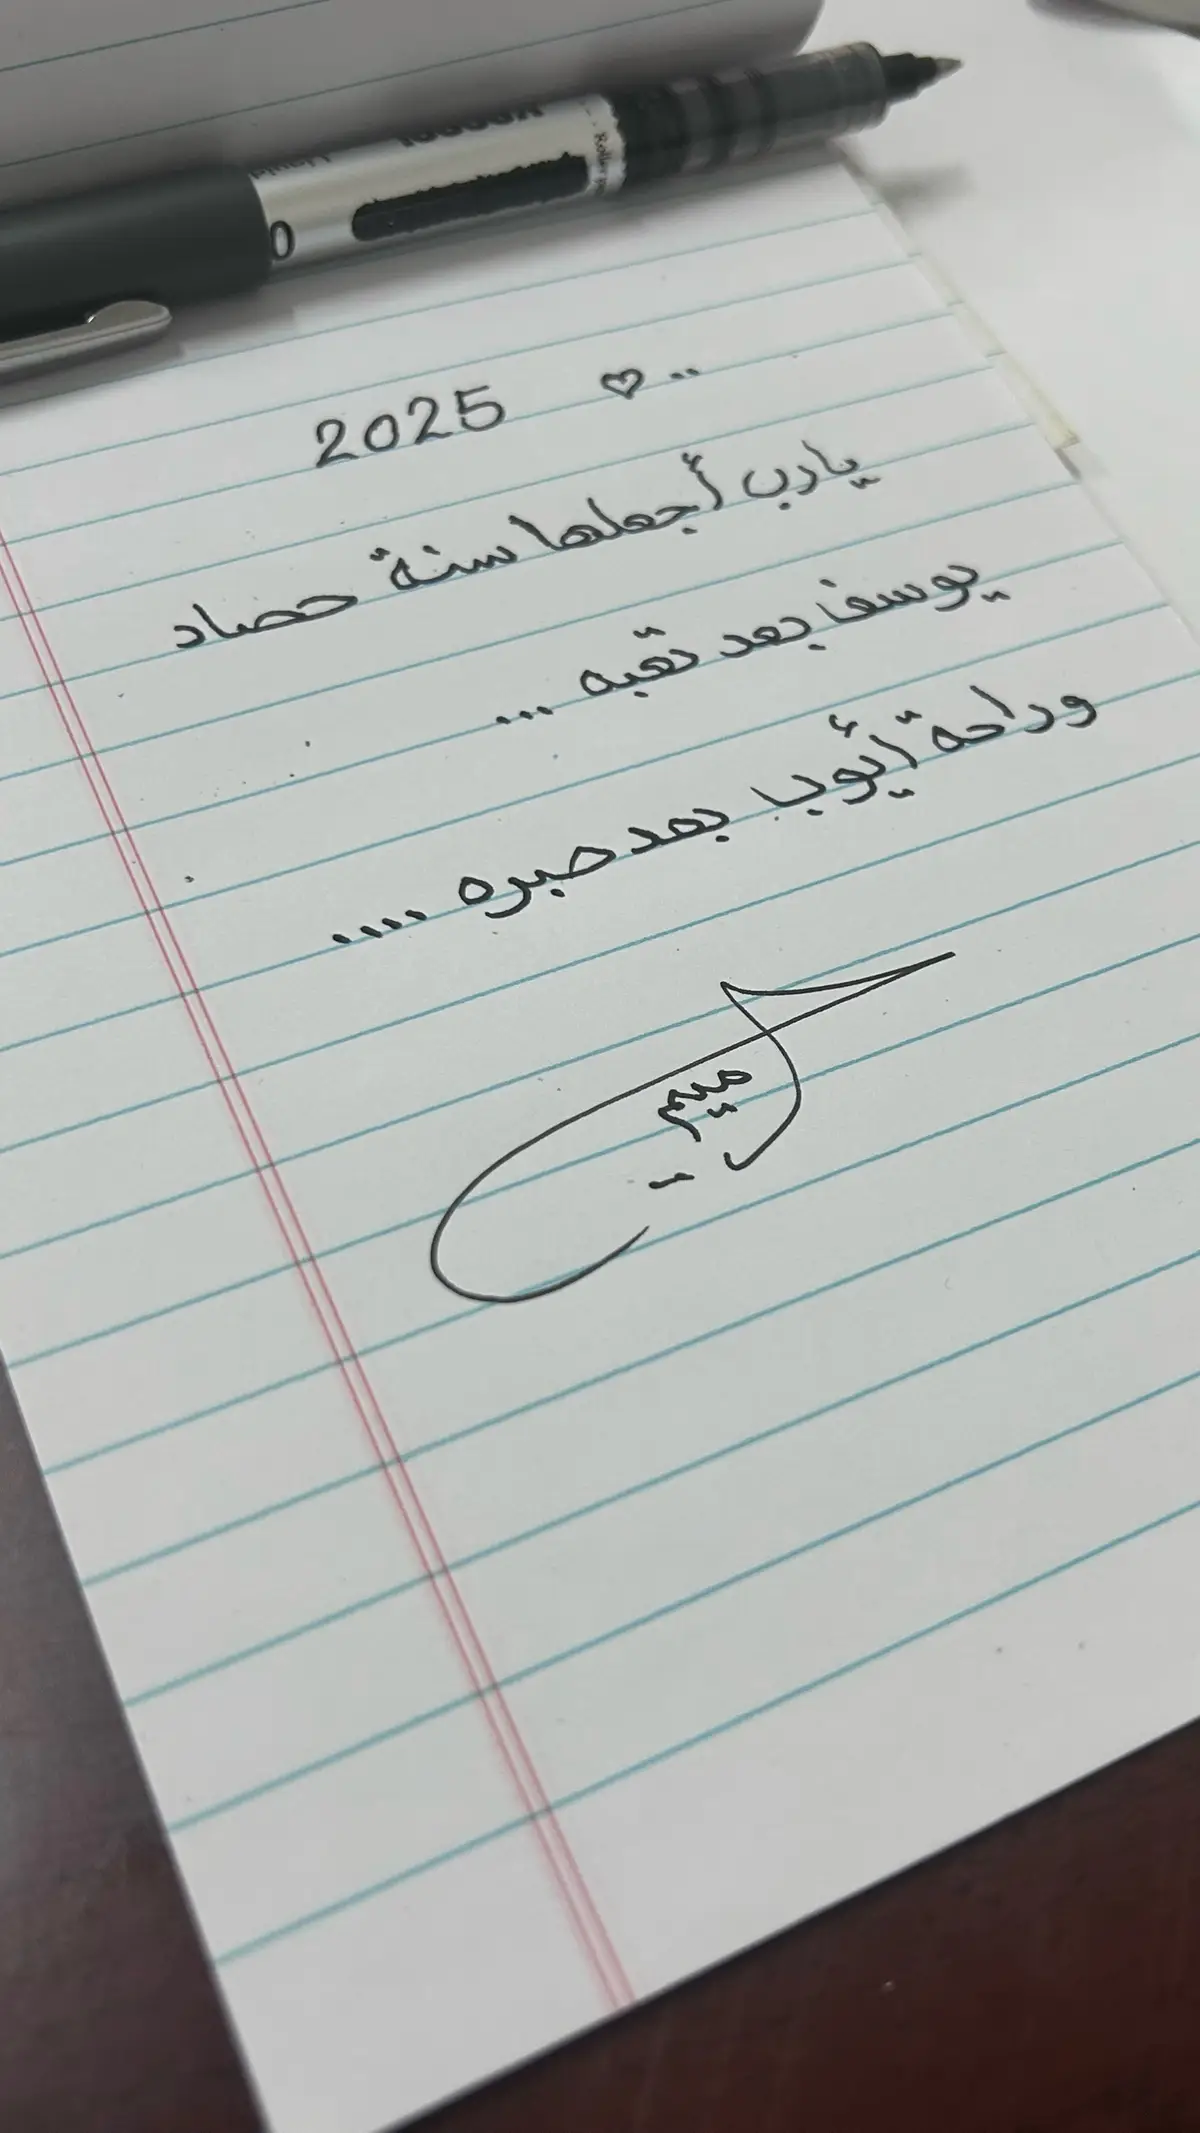 2025 ♡ ..
يارب أجعلها سنة حصاد
يوسف بعد تعبه ...
وراحة أيوب بعد صبره ....
ميم